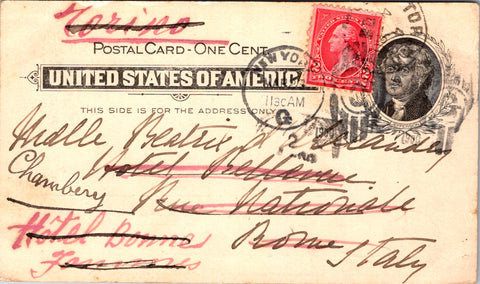 Torino
POSTAL CARD - ONE CENT.
UNITED STATES OF AMERICA
NEW YORK
11 30 AM
THIS SIDE IS FOR THE ADDRESS ONLY
G
2
Mdlle Beatrix
Hotel Bellevue
Chambery
Rue Nationale
Hôtel Bonnes
Rome
Italy